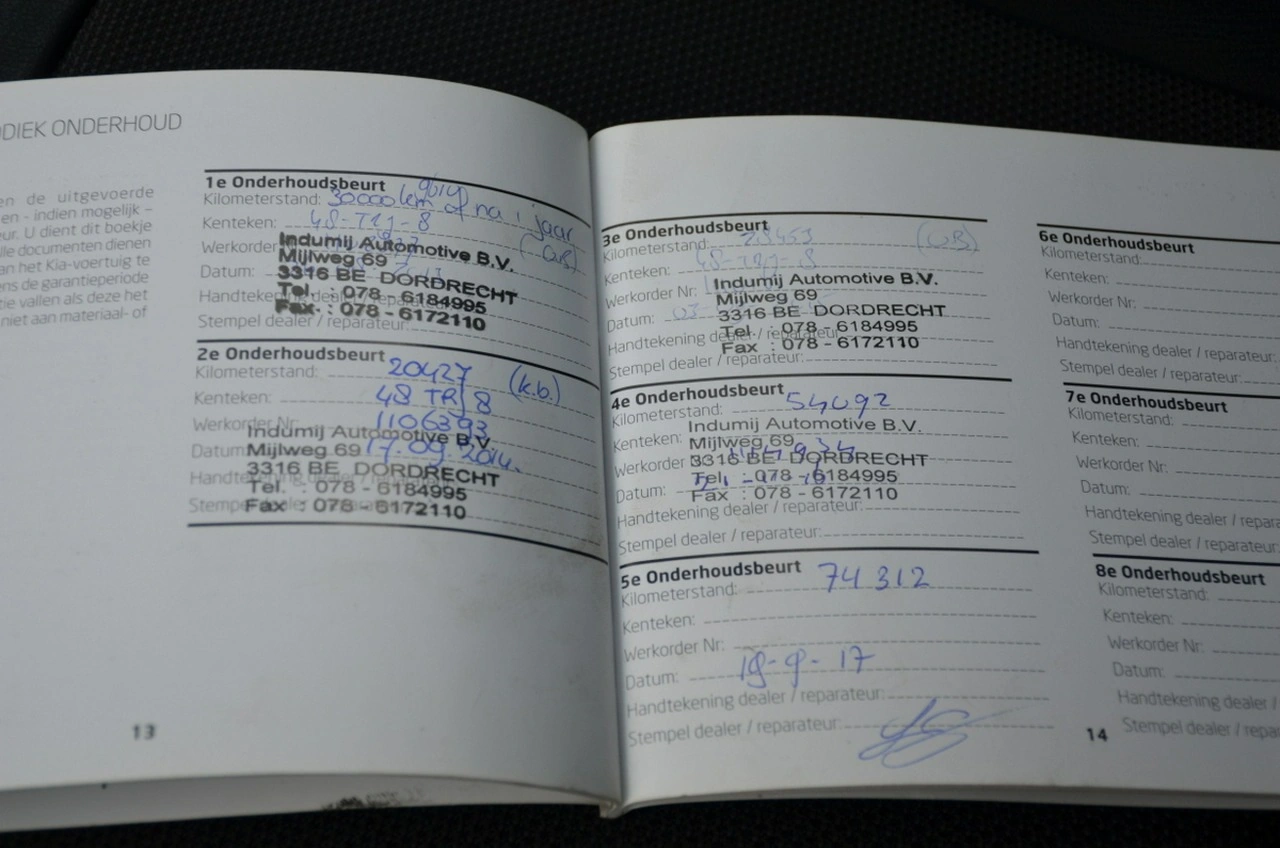 DIEK ONDERHOUD
en de uitgevoerde
en - indien mogelijk –
eur. U dient dit boekje
lle documenten dienen
an het Kia-voertuig te
ens de garantieperiode
tie vallen als deze het
niet aan materiaal- of
1e Onderhoudsbeurt
Kilometerstand: 30000 km of na 1 jaar
Kenteken: 48-TRJ-8
Werkorder
Datum:
Handtekening dealer / reparateur:
Stempel dealer / reparateur:
Indumij Automotive B.V.
Mijlweg 69
3316 BE DORDRECHT
Tel. : 078 - 6184995
Fax. : 078 - 6172110
2e Onderhoudsbeurt
Kilometerstand: 20427 (k.b.)
Kenteken: 48 TRJ 8
Werkorder Nr: 1106393
Datum 17.09.2014.
Indumij Automotive B.V.
Mijlweg 69
3316 BE DORDRECHT
Tel. : 078 - 6184995
Fax : 078 - 6172110
13
3e Onderhoudsbeurt
Kilometerstand:
Kenteken: 48-TRJ-8
Werkorder Nr:
Datum:
Handtekening dealer / reparateur:
Stempel dealer / reparateur:
Indumij Automotive B.V.
Mijlweg 69
3316 BE DORDRECHT
Tel : 078 - 6184995
Fax : 078 - 6172110
4e Onderhoudsbeurt
Kilometerstand: 54092
Kenteken:
Werkorder
Datum:
Handtekening dealer / reparateur:
Stempel dealer / reparateur:
Indumij Automotive B.V.
Mijlweg 69
3316 BE DORDRECHT
Tel : 078 - 6184995
Fax : 078 - 6172110
5e Onderhoudsbeurt
Kilometerstand: 74312
Kenteken:
Werkorder Nr:
Datum: 19-9-17
Handtekening dealer / reparateur:
Stempel dealer / reparateur:
6e Onderhoudsbeurt
Kilometerstand:
Kenteken:
Werkorder Nr:
Datum:
Handtekening dealer / reparateur:
Stempel dealer / reparateur:
7e Onderhoudsbeurt
Kilometerstand:
Kenteken:
Werkorder Nr:
Datum:
Handtekening dealer / repara
Stempel dealer / reparateur
8e Onderhoudsbeurt
Kilometerstand:
Kenteken:
Werkorder Nr:
Datum:
Handtekening dealer /
Stempel dealer / repa
14